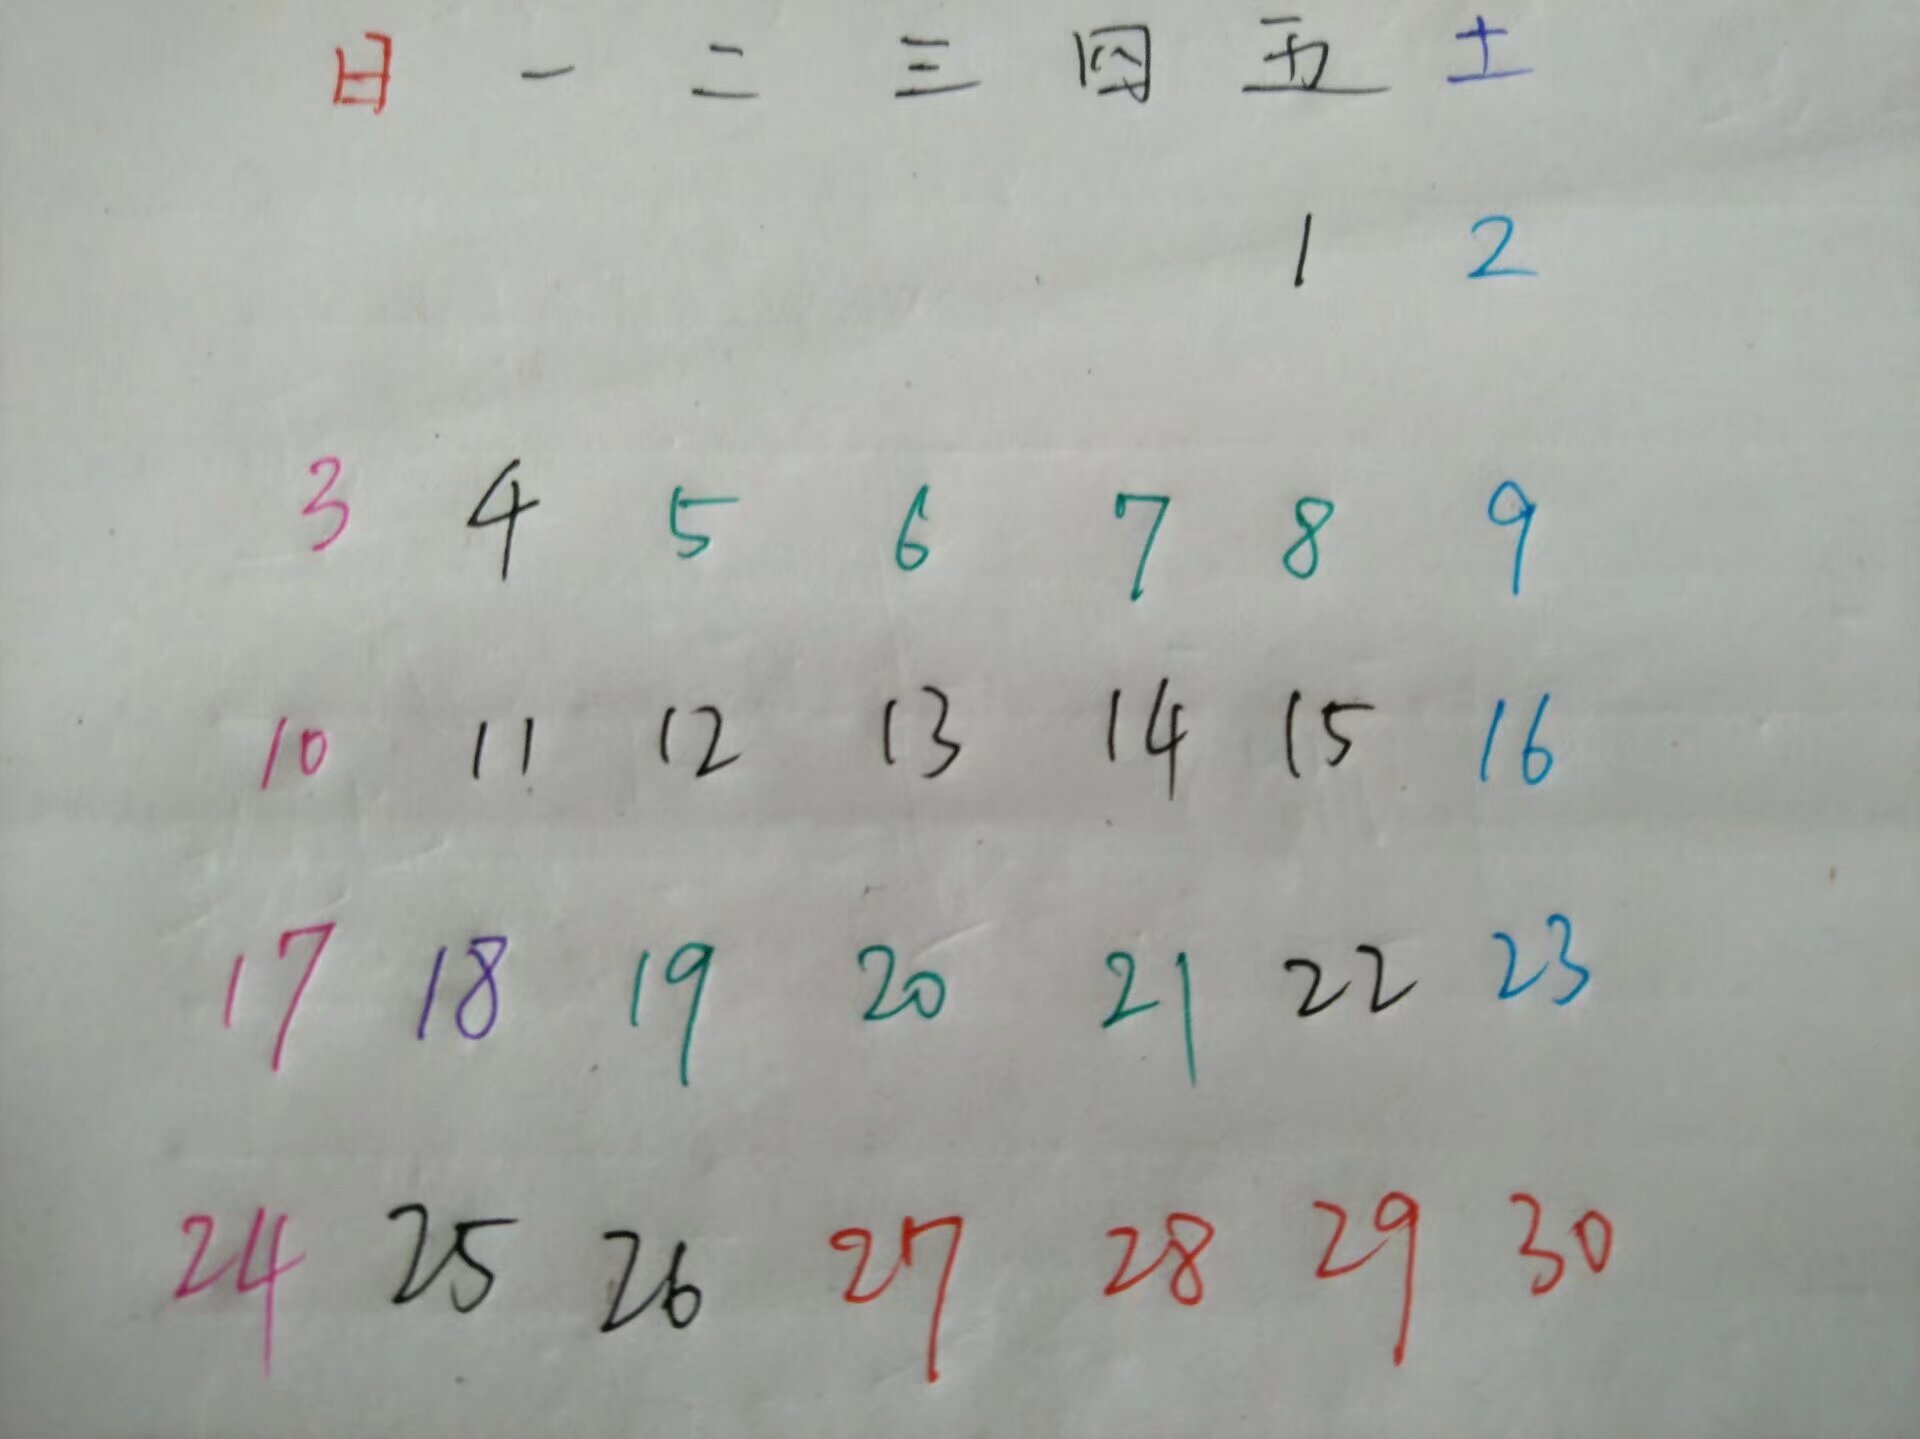 日 一 二 三 四 五 土
1 2
3 4 5 6 7 8 9
10 11 12 13 14 15 16
17 18 19 20 21 22 23
24 25 26 27 28 29 30